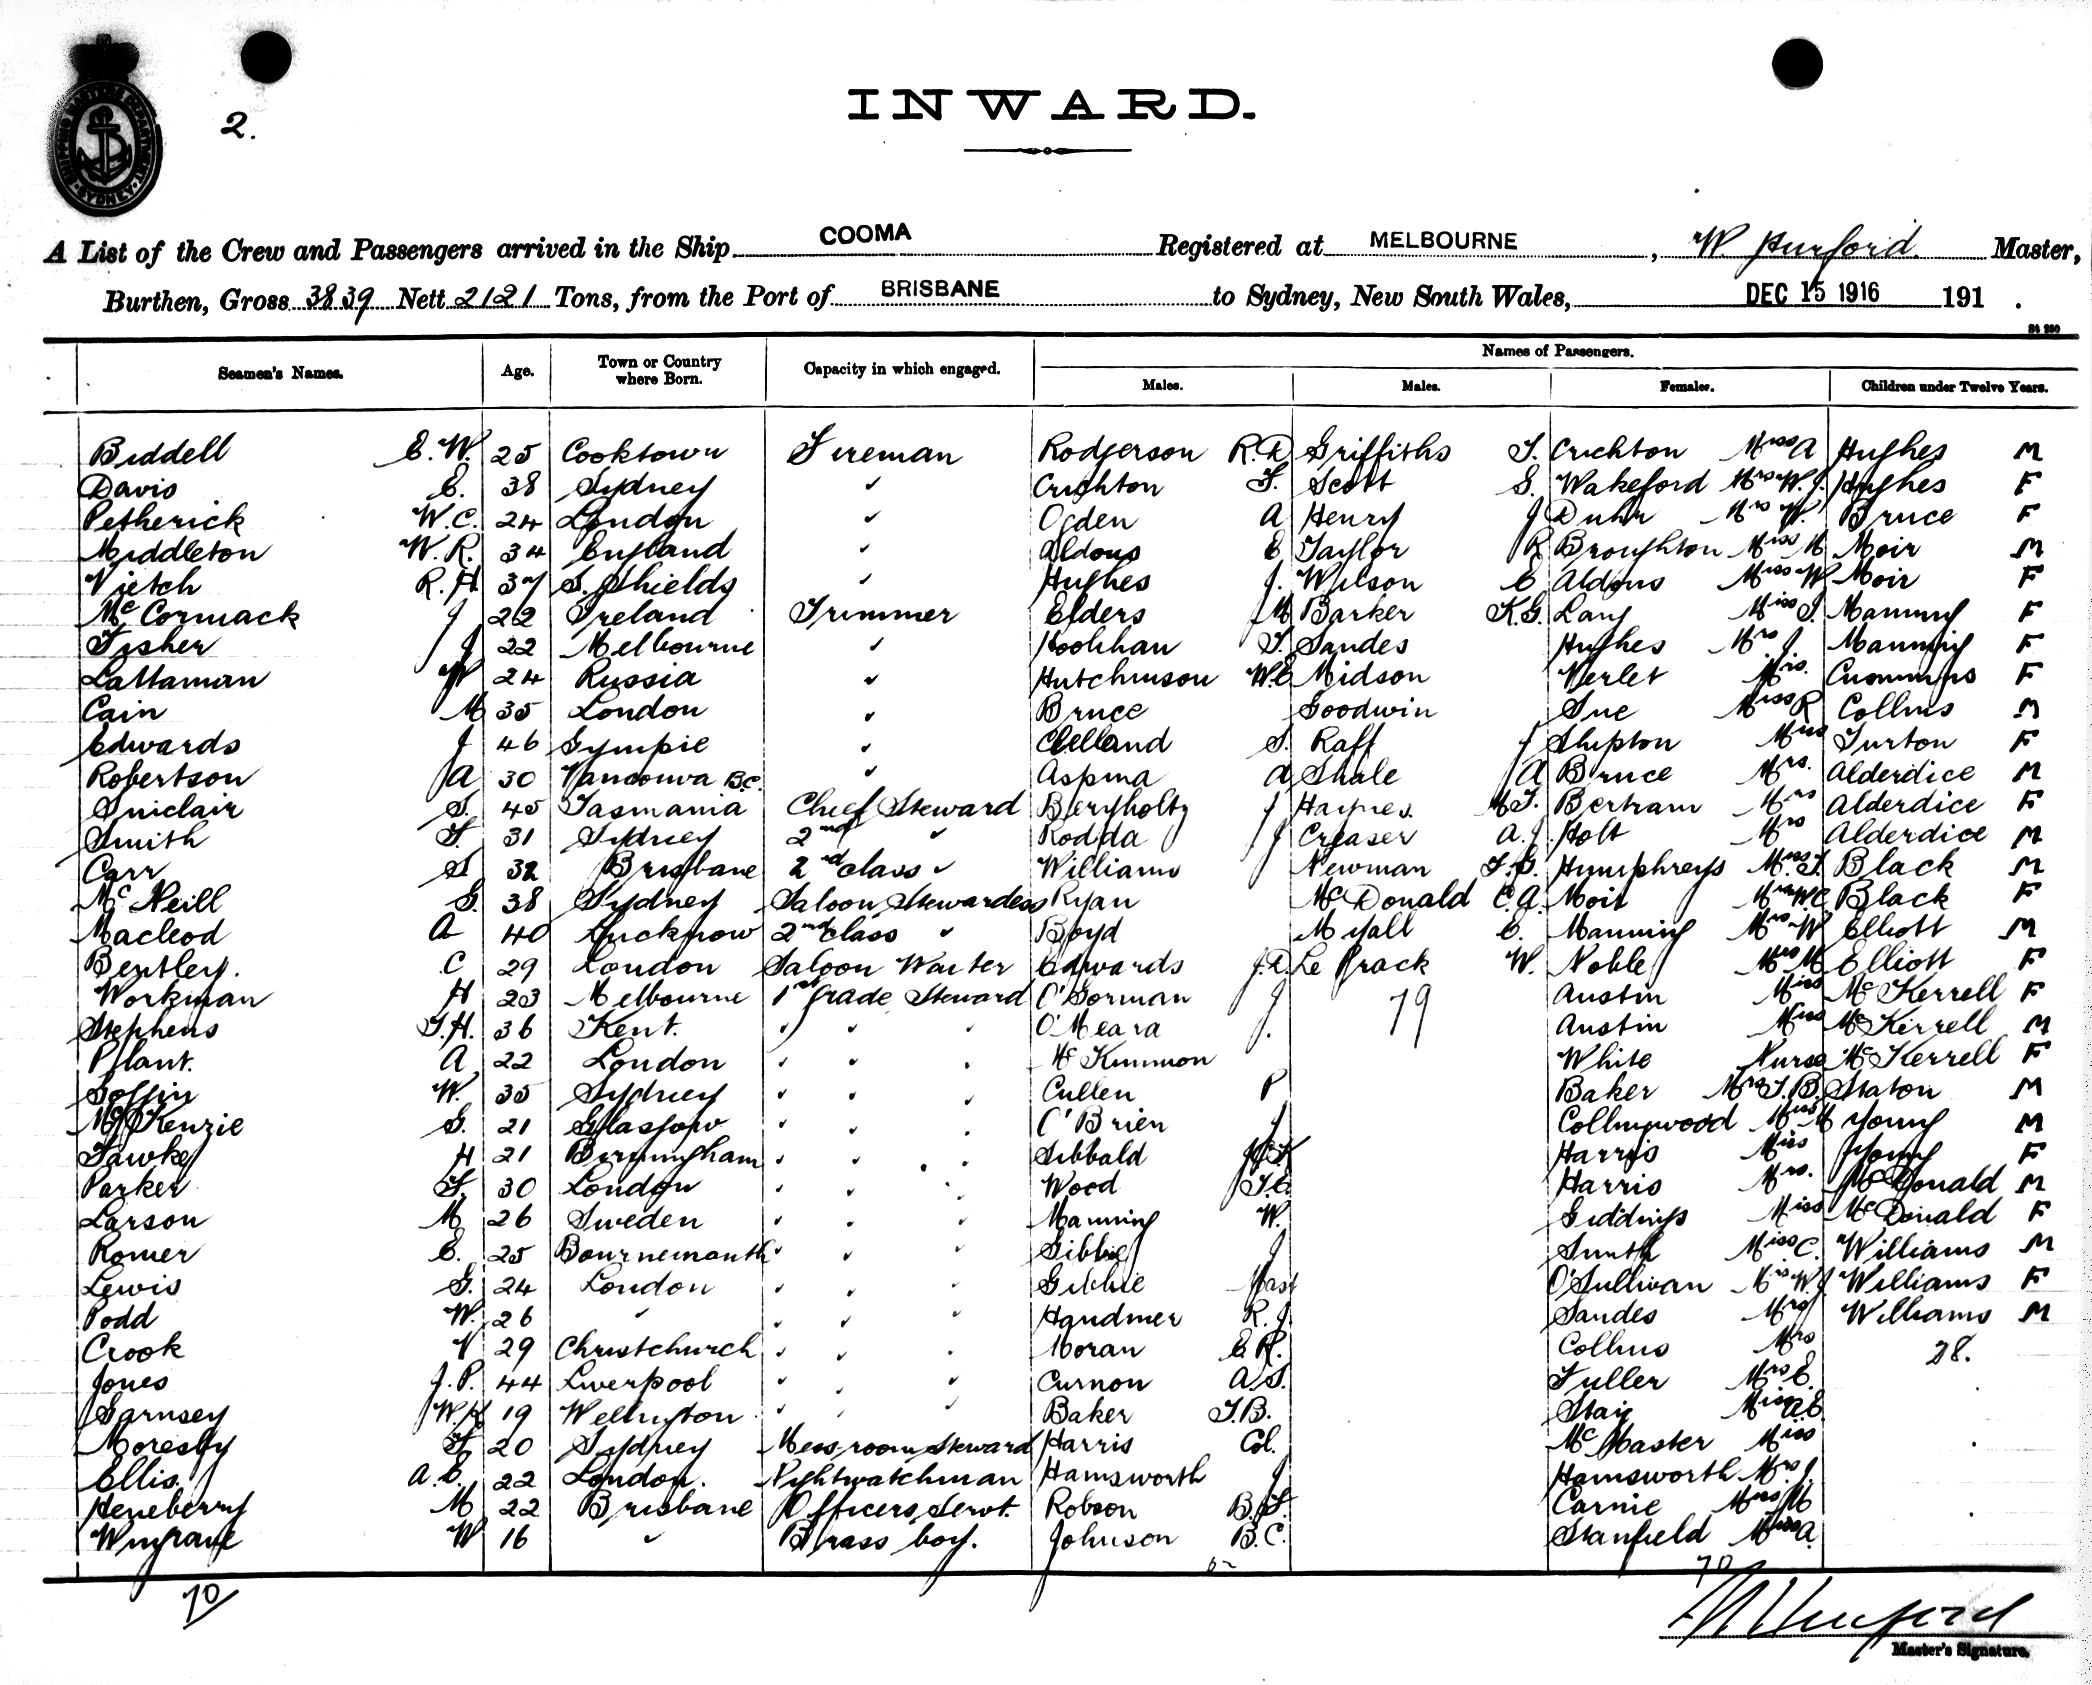 SHIPPING MASTERS DEPARTMENT SYDNEY
2.
INWARD.
A List of the Crew and Passengers arrived in the Ship COOMA Registered at MELBOURNE, W. Hurford. Master,
Burthen, Gross 3839 Nett 2121 Tons, from the Port of BRISBANE to Sydney, New South Wales, DEC 15 1916 191 .
St 250
Seamen's Names. Age. Town or Country where Born. Capacity in which engaged. Names of Passengers.
Males. Males. Females. Children under Twelve Years.
Biddell E.W. 25 Cooktown Fireman Rodgerson R.D Griffiths T. Crichton Miss A Hughes M
Davis E. 38 Sydney " Crighton T. Scott S. Wakeford Mrs W.J. Hughes F
Petherick W.C. 24 London " Ogden A Henry J Duhr Mrs W. Bruce F
Middleton W.R. 34 England " Aldous E Taylor R Broughton Miss M Moir M
Vietch R.H 37 S. Shields " Hughes J. Wilson E Aldous Miss W Moir F
McCormack J 22 Ireland Trimmer Elders M Barker K.G. Lang Miss I. Manning F
Fisher J 22 Melbourne " Hoolihan T. Sandes Hughes Mrs J. Manning F
Lattaman W 24 Russia " Hutchinson W.E Midson Verlet Mrs. Cummins F
Cain M 35 London " Bruce Goodwin Sue Miss R Collins M
Edwards J 46 Gympie " Clelland S. Raff J Shipton Miss Turton F
Robertson A 30 Vancouva B.C. " Aspina A Shale A Bruce Mrs. Alderdice M
Sinclair S. 45 Tasmania Chief Steward Bergholtz J Haynes M.T. Bertram Mrs Alderdice F
Smith F. 31 Sydney 2nd " Rodda J Creaser A.J. Holt Mrs Alderdice M
Carr S 32 Brisbane 2nd class " Williams Newman F.G. Humphreys Miss F. Black M
McNeill G. 38 Sydney Saloon Stewardess Ryan McDonald C.A. Moir Mrs W.C Black F
Macleod A 40 Lucknow 2nd class " Boyd Myall E. Manning Mrs W Elliott M
Bentley. C 29 London Saloon Waiter Edwards J.A. Le Brack W. Noble Mrs M Elliott F
Workman H 23 Melbourne 1st grade Steward O'Gorman J 79 Austin Miss McKerrell F
Stephens T.H. 36 Kent. " " " O'Meara J. Austin Miss McKerrell M
Plant. A 22 London " " " McKinnon White Nurse McKerrell F
Goffin W. 35 Sydney " " " Cullen P Baker Mrs T.B. Staton M
McKenzie G. 21 Glasgow " " " O'Brien J Collingwood Miss M Young M
Fawke H 21 Birmingham " " " Sibbald Harris Miss Young F
Parker F. 30 London " " " Wood T.E. Harris Mrs. McDonald M
Larson M 26 Sweden " " " Manning W. Giddings Miss McDonald F
Romer E. 25 Bournemouth " " " Gibbie J Smith Miss C. Williams M
Lewis G. 24 London " " " Gibbie Mast O'Sullivan Mrs W.J Williams F
Podd W. 26 " " " " Handmer R.J. Sandes Mrs Williams M
Crook V 29 Christchurch " " " Horan E.R. Collins Mrs 28.
Jones J.P. 44 Liverpool " " " Curnon A.S. Fuller Mrs E.
Garnsey W.H. 19 Wellington " " " Baker T.B. Staig Miss A.E.
Moresby F. 20 Sydney Mess-room Steward Harris Col. McMaster Miss
Ellis. A.E. 22 London. Nightwatchman Hamsworth J Hamsworth Mrs J.
Heneberry M 22 Brisbane Officers Servt. Robson B.F. Carnie Miss M
Wingrave W 16 " Brass boy. Johnson B.C. Stanfield Miss A.
70 70
W Hurford
Master's Signature.